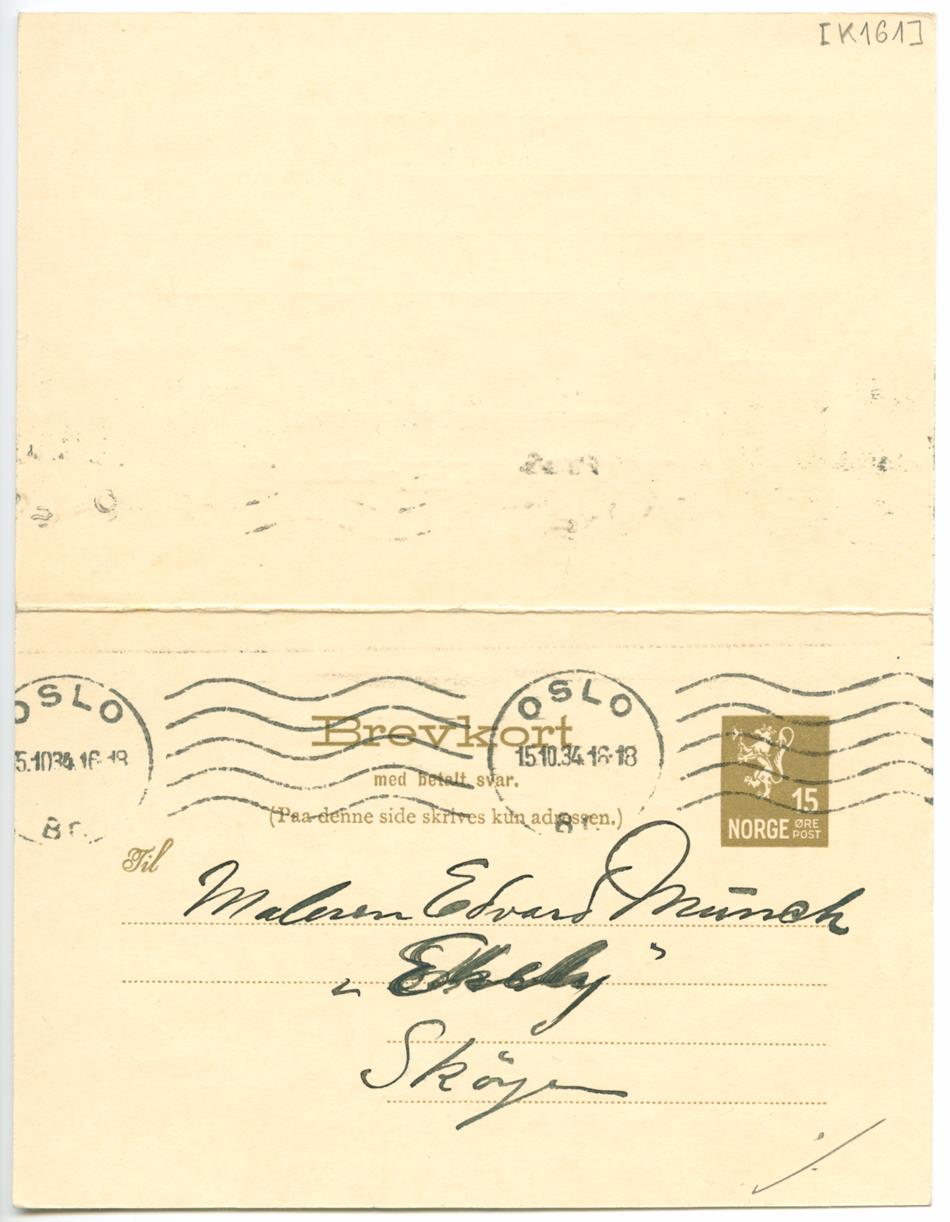 [K161]
OSLO OSLO
15.10.34.16-18 15.10.34.16-18
Br. Br.
Brevkort
med betalt svar.
(Paa denne side skrives kun adressen.)
15
NORGE ØRE
POST
Til
Maleren Edvard Munch
„Ekely”
Sköyen